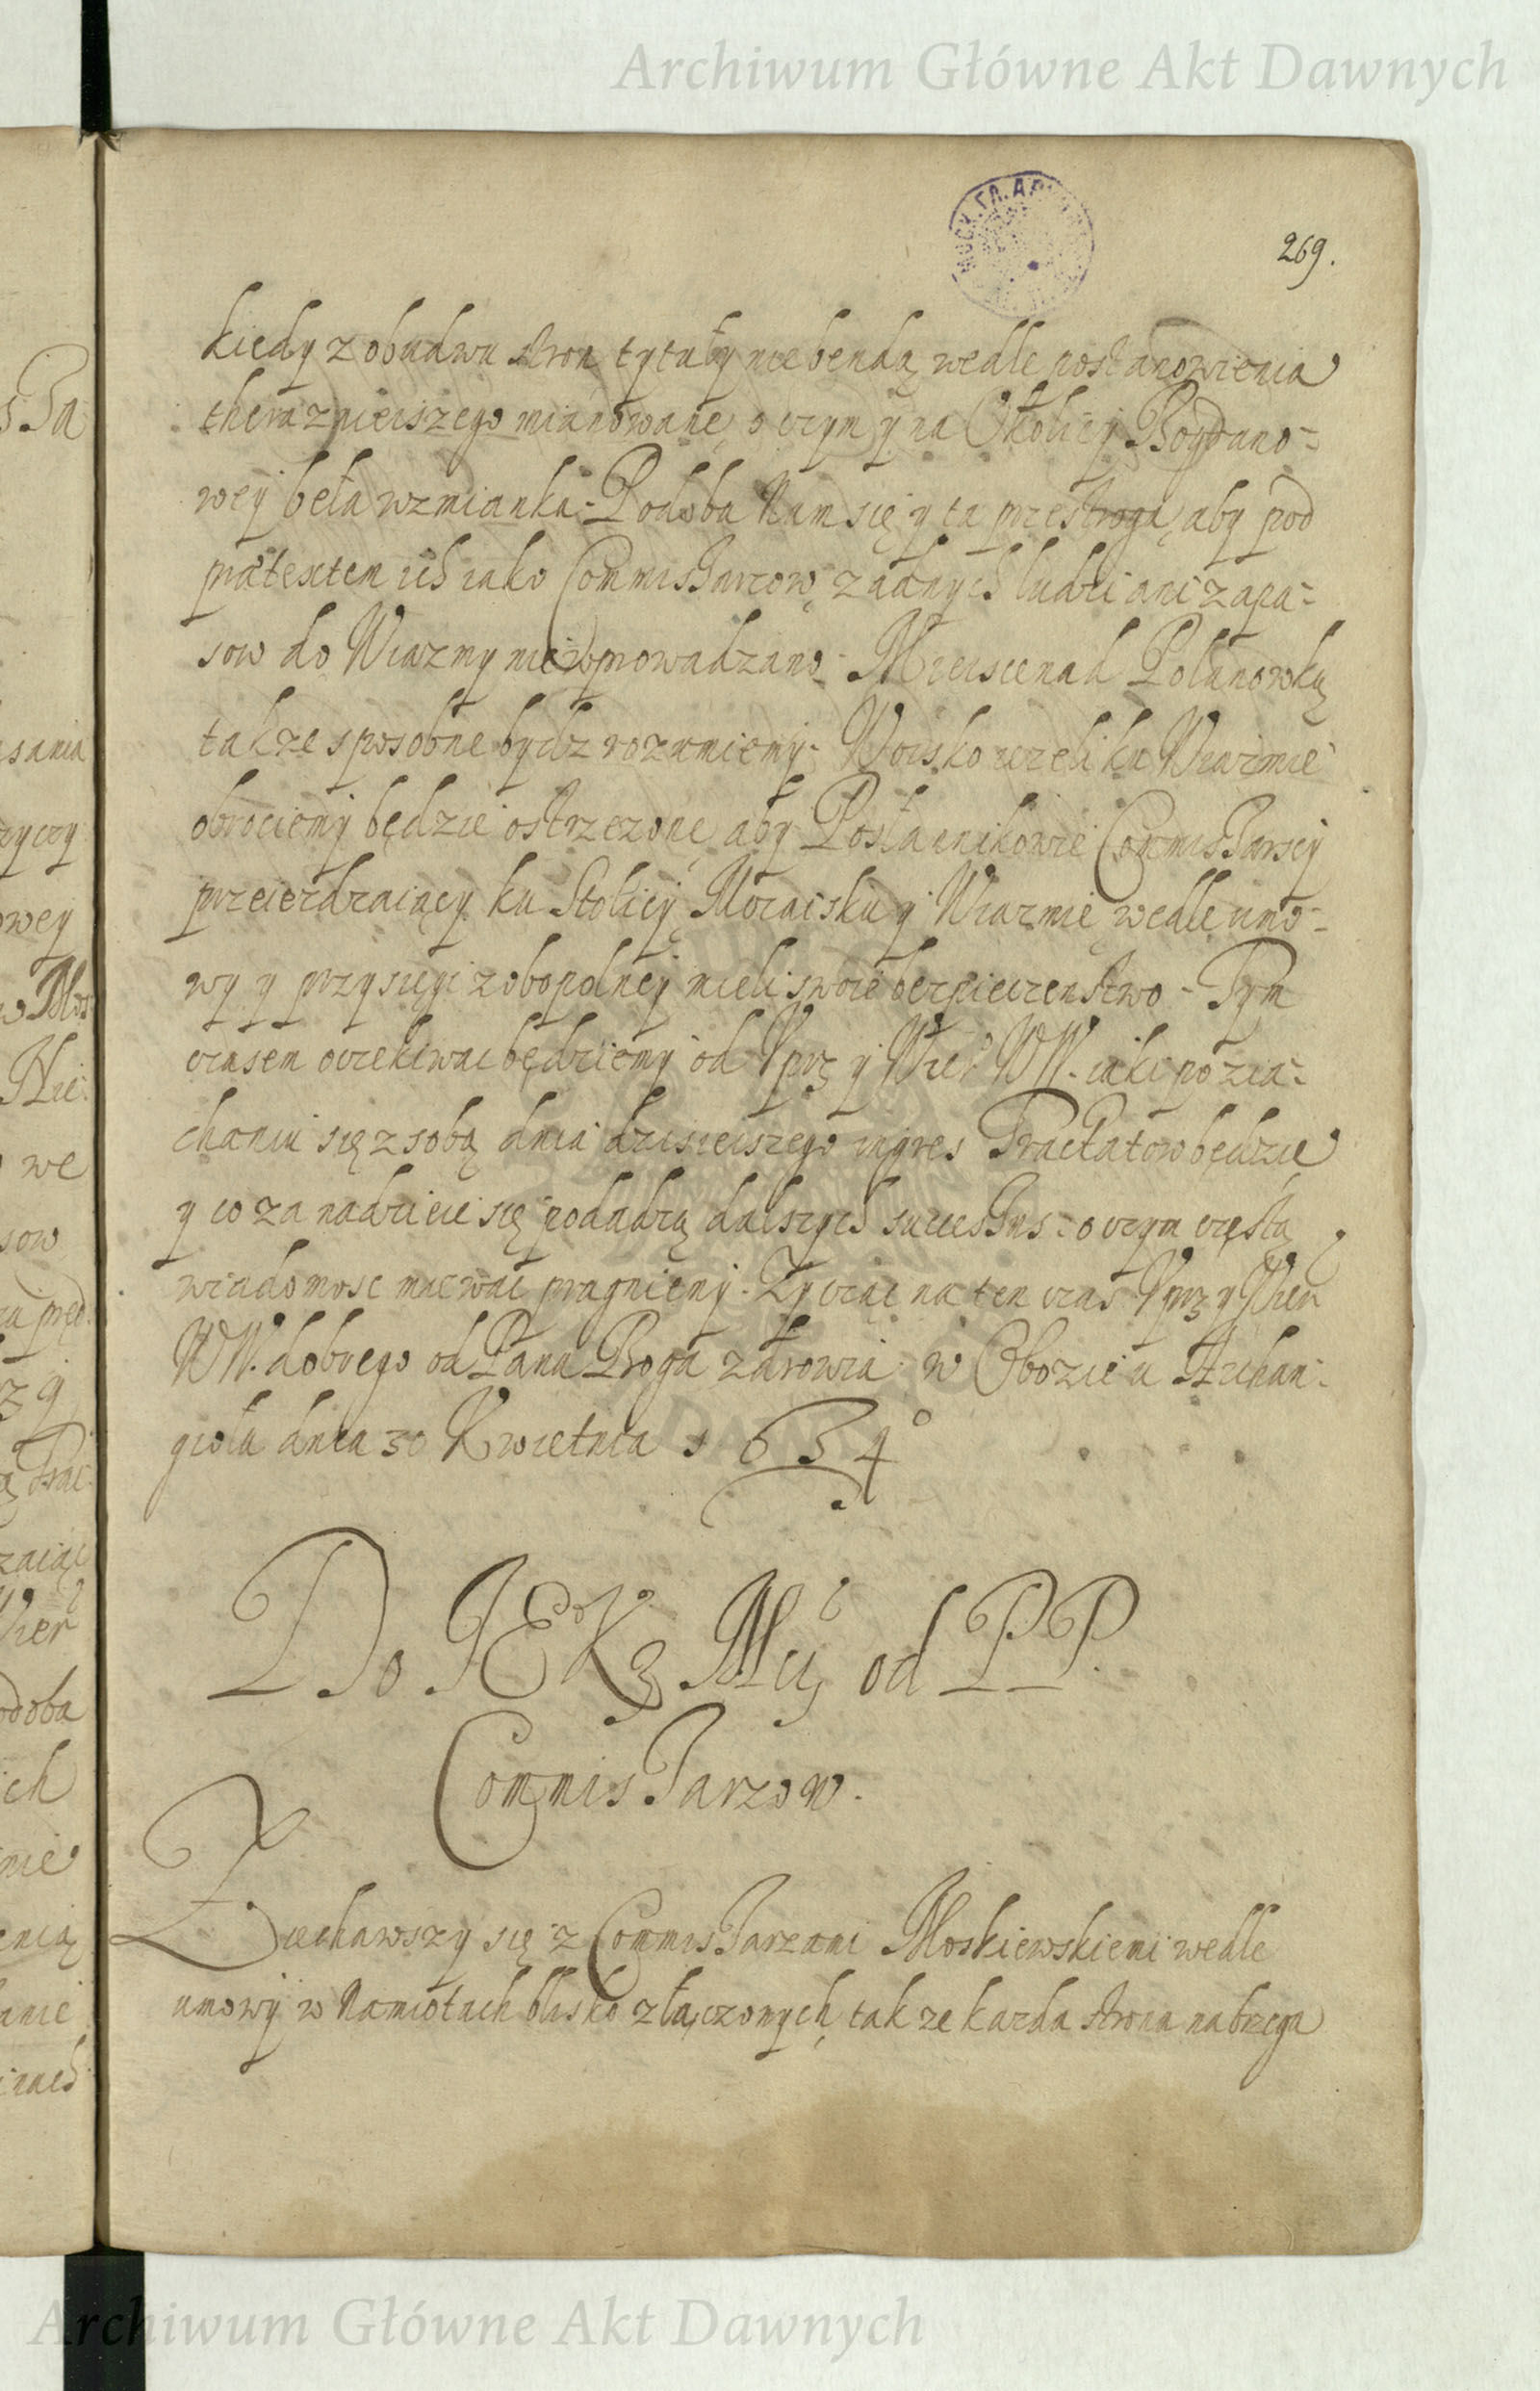 Archiwum Główne Akt Dawnych
269.
kiedy z obudwu stron tytuły nie bendą wedle postanowienia
theraznieiszego mianowane, o czym y na Okolicy Bogdano-
wey beła wzmianka. Podoba Nam się y ta przestroga, aby pod
prætextem ich iako Commissarzow, zadnych ludzi ani zapa-
sow do Wiazmy nie wprowadzano. Mieisce nad Polanowką
takze sposobne bydz rozumiemy. Woisko iezeli ku Wiazmie
obrociemy będzie ostrzezone, aby Posłacnikowie Commissarscy
przeiezdzaiący ku Stolicy, Mozaisku y Wiazmie, wedle umo-
wy y przysięgi zobopolney mieli swoie bezpieczenstwo. Tym
czasem oczekiwac będziemy od Uprz y Wier WW. iaki po zia-
chaniu się z sobą dnia dzisieiszego ingres Tractatow będzie
y co za nadzieie się podadzą dalszych successus: o czym częstą
wiadomosc miewac pragniemy. Zycząc na ten czas Uprz y Wier
WW. dobrego od Pana Boga zdrowia. w Obozie u Archan-
gioła dnia 30 Kwietnia 1634
Do JEKM Mci od PP.
Commissarzow.
Ziechawszy się z Commissarzami Moskiewskiemi wedle
umowy w Namiotach blisko złączonych, tak ze kazda strona na brzegu
Archiwum Główne Akt Dawnych